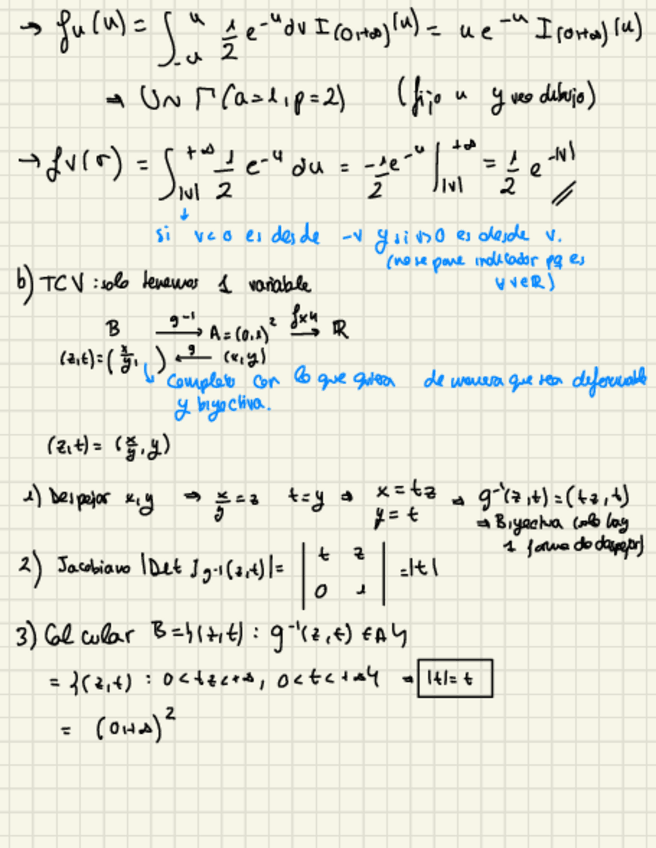 → fu(u) = ∫_{-u}^{u} 1/2 e^{-u} dv I(0,+∞)(u) = u e^{-u} I(0,+∞)(u)
⇒ U ~ Γ(a=1, p=2) (fijo u y veo dibujo)
→ fv(v) = ∫_{|v|}^{+∞} 1/2 e^{-u} du = -1/2 e^{-u} |_{|v|}^{+∞} = 1/2 e^{-|v|} //
↓
si v<0 es desde -v y si v>0 es desde v.
(no se pone indicador pq es
∀ v∈ℝ)
b) TCV: solo tenemos 1 variable
B —g⁻¹→ A=(0,∞)² —fxy→ ℝ
(z,t)=(x/y, ) ←g— (x,y)
↳ completo con lo que quiera de manera que sea
y biyectiva.
(z,t) = (x/y, y)
1) Despejar x,y ⇒ x/y = z t=y ⇒ x=tz y=t ⇒ g⁻¹(z,t)=(tz,t)
⇒ Biyectiva (solo hay
1 forma de despejar)
2) Jacobiano |Det J g⁻¹(z,t)| = | t z ; 0 1 | = |t|
3) Calcular B={(z,t) : g⁻¹(z,t) ∈ A}
= {(z,t) : 0<tz<+∞, 0<t<+∞} → |t|=t
= (0,+∞)²